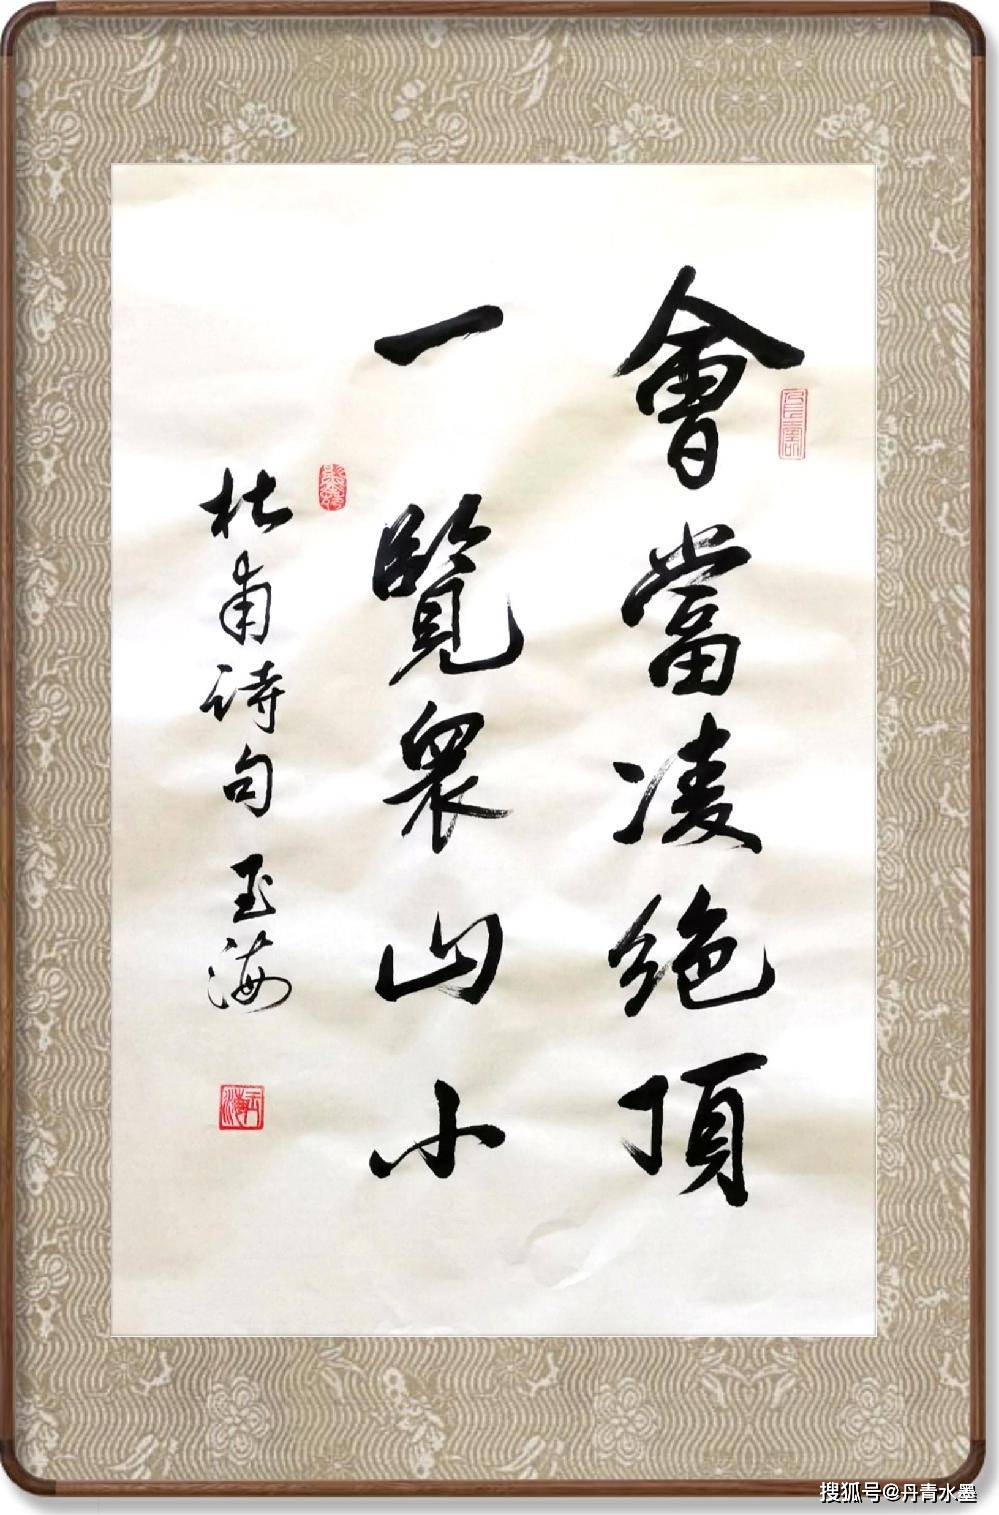 會當凌絕頂
一覽衆山小
杜甫詩句 玉海
玉海
搜狐号@丹青水墨